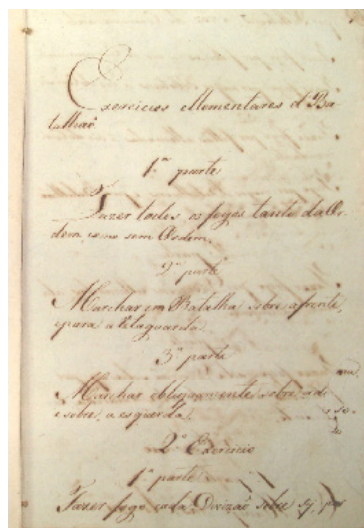 Exercicios Elementares d'Ba
talhaõ
1.ª parte
Fazer todos os fogos tanto da Or
dem, como sem Ordem.
2.ª parte
Marchar em Batalha sobre a frente,
e para a Retaguarda.
3.ª parte
Marchar obliquamente sobre a d
e sobre, a esquerda
2.º Exercicio
1.ª parte
Fazer fogo cada Divizaõ sobre sy, por